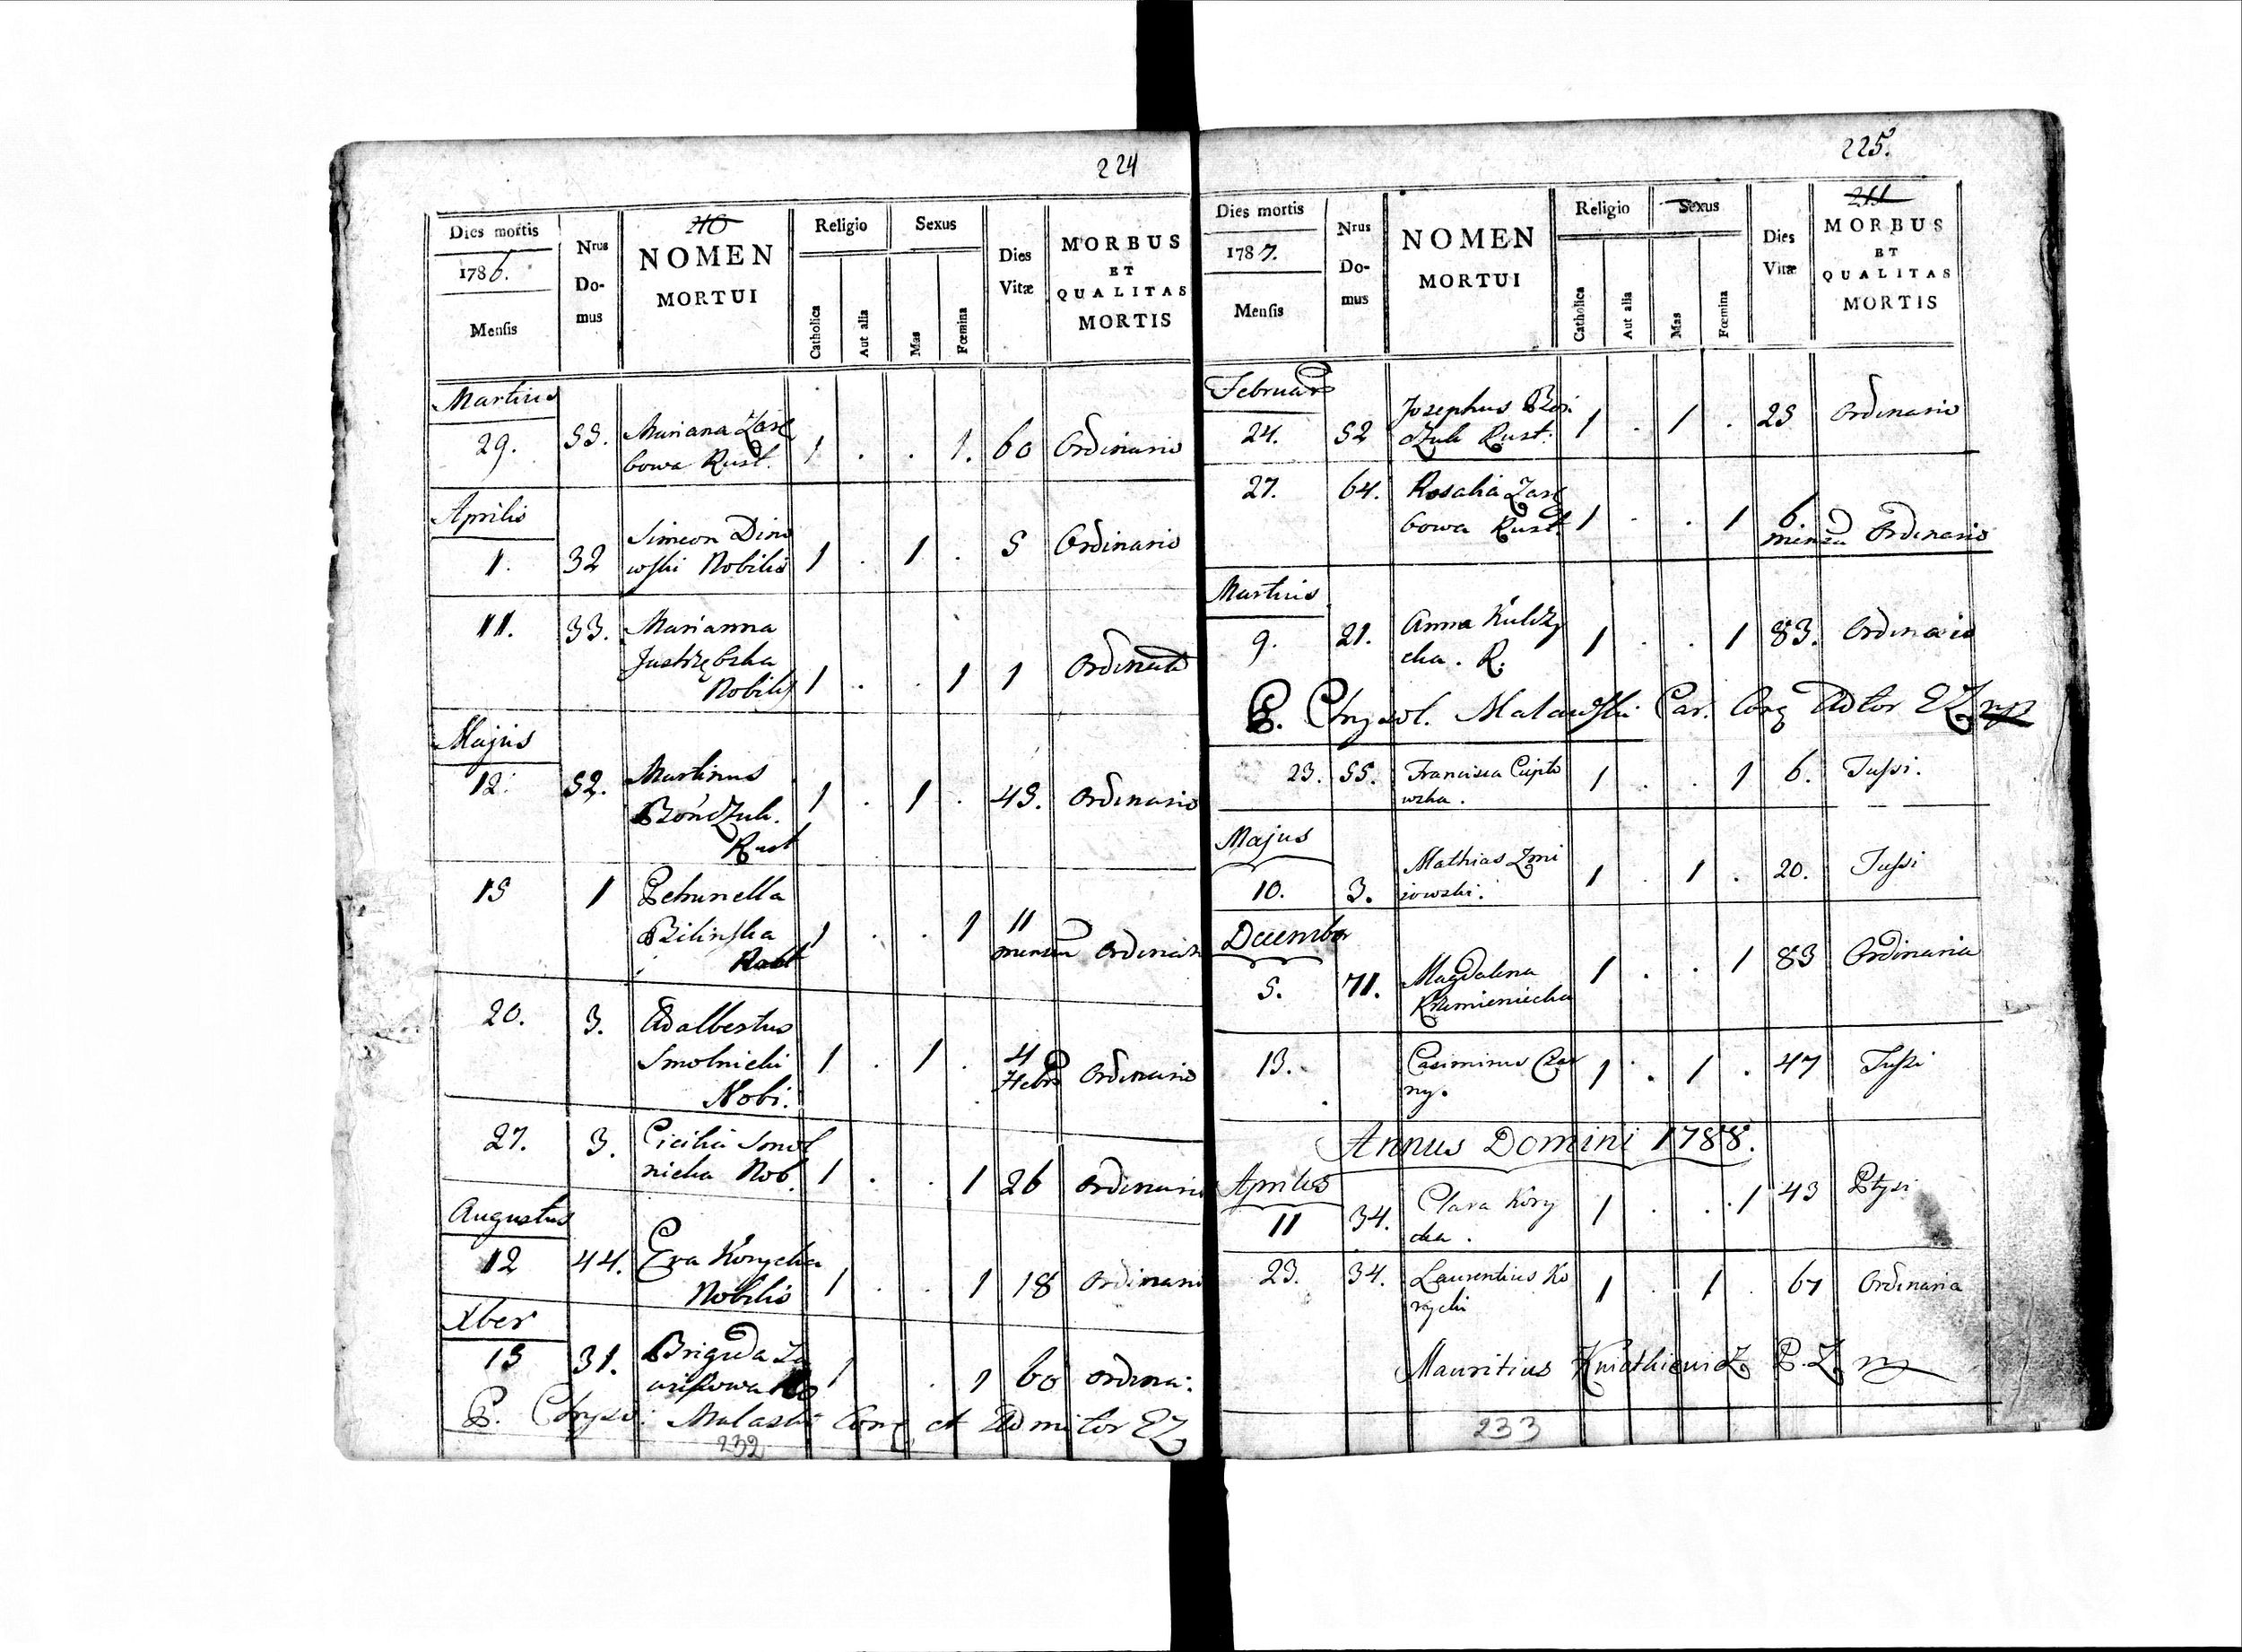 224
Dies mortis
1786.
Mensis
Nrus
Do-
mus
210
NOMEN
MORTUI
Religio
Catholica
Aut alia
Sexus
Mas
Fœmina
Dies
Vitæ
MORBUS
ET
QUALITAS
MORTIS
Martius
29. 55. Mariana Zarę
bowa Rust. 1 . . 1. 60 Ordinario
Aprilis
1. 32 Simeon Dino
wski Nobilis 1 . 1 . 5 Ordinario
11. 33. Marianna
Jastrzębska
Nobilis 1 . . 1 1
Majus
12. 52. Martinus
Bończuk.
Rust 1 . 1 . 45. Ordinario
15 1 Petrunella
Bilinska
Rust 1 . . 1 11
mensium
20. 3. Adalbertus
Smolnicki
Nobi. 1 . 1 . 4
Hebd Ordinario
27. 3. Cicilia Smol
nicka Nob. 1 . . 1 26 Ordinario
Augustus
12 44. Eva Korycka
Nobilis 1 . . 1 18 Ordinario
Xber
15 31. Brigida
1 . 1 60 ordina:
P. Chryso: Malaski Cong et Admitor EZ
232
225.
Dies mortis
1787.
Mensis
Nrus
Do-
mus
NOMEN
MORTUI
Religio
Catholica
Aut alia
Sexus
Mas
Fœmina
Dies
Vitæ
211
MORBUS
ET
QUALITAS
MORTIS
Februar
24. 52 Josephus Boń
czuk Rust: 1 . 1 . 25 Ordinario
27. 64. Rosalia Zarę
bowa Rust. 1 . . 1 6.
mensiu Ordinario
Martius
9. 21. Anna Kulczy
cka. R. 1 . . 1 83. Ordinario
P. Chrysol. Malawski Par. Cong Adtor EZ mp
23. 55. Francisca
wska. 1 . . 1 6. Tussi.
Majus
10. 3. Mathias Zmi
iowski. 1 . 1 . 20. Tussi
Decembr
5. 71. Magdalena
Krzemieniecka 1 . . 1 83 Ordinaria
13. Casimirus Czar
ny. 1 . 1 . 47 Tussi
Annus Domini 1788.
Aprilis
11 34. Clara Kory
cka. 1 . . 1 43 Ptysi
23. 34. Laurentius Ko
rycki 1 . 1 . 67 Ordinaria
Mauritius P. Z. mp
233